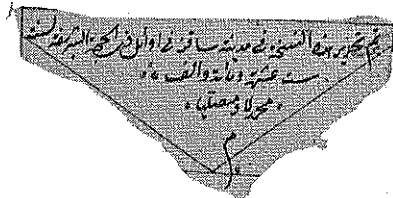 تم تحرير هذه النسخة في مدينة ساقز في اوائل ذي الحجة الشريفة لسنة
ست عشرة ومائة والف
حامدا ومصليا
م